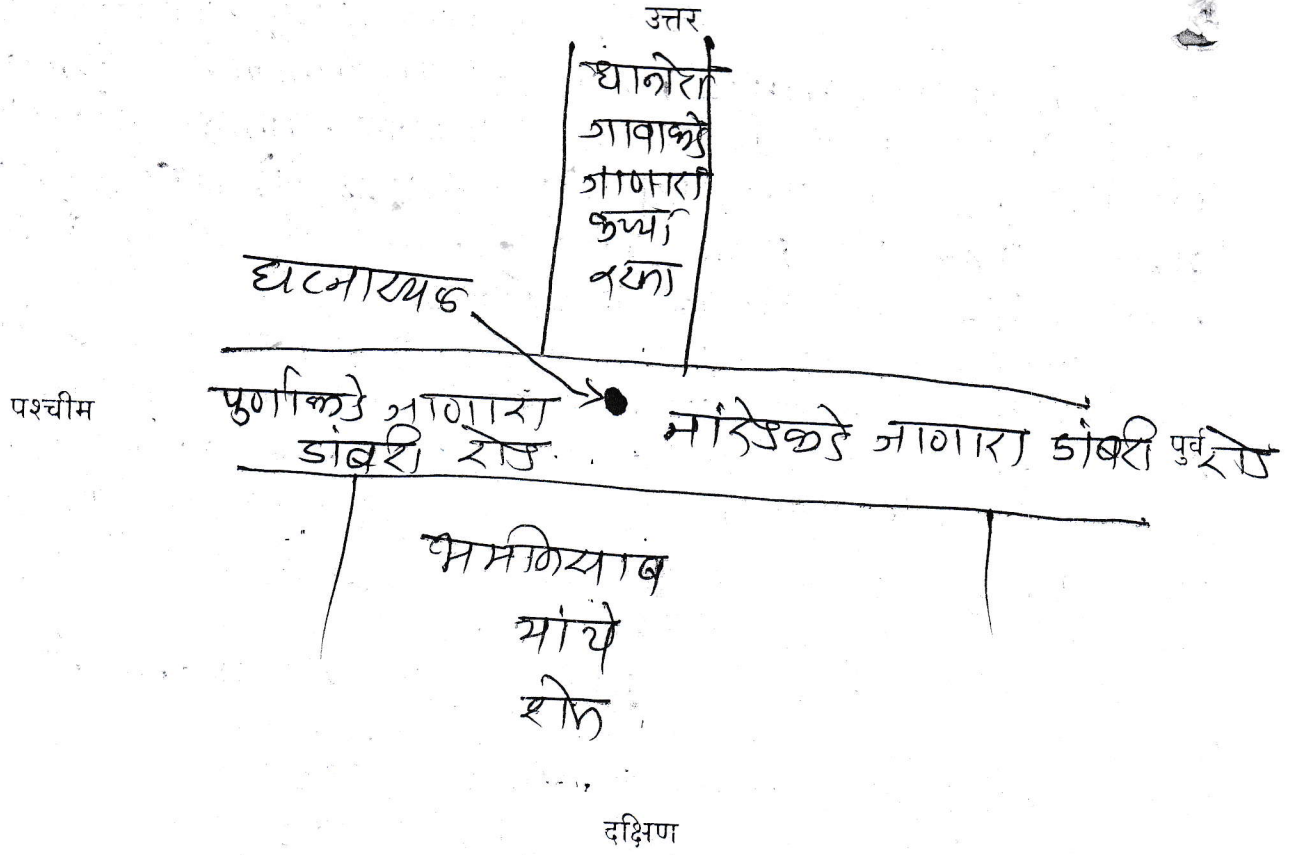 उत्तर
धानोरा
गावाकडे
जाणारा
कच्चा
रस्ता
घटनास्थळ
पश्चीम
पुर्णाकडे जाणारा
डांबरी रोड.
नांदेडकडे जाणारा डांबरी रोड
पुर्व
यांचे
शेत
दक्षिण